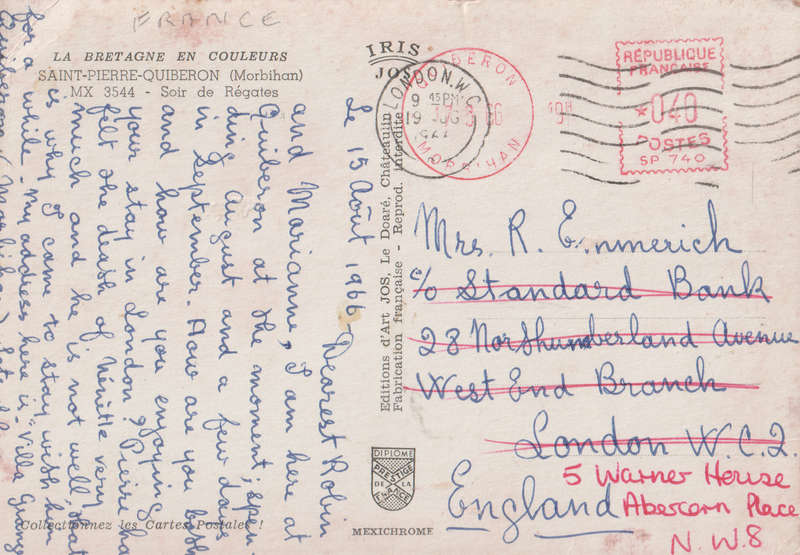 FRANCE
LA BRETAGNE EN COULEURS
SAINT-PIERRE-QUIBERON (Morbihan)
MX 3544 - Soir de Régates
IRIS
JOS
Editions d'Art JOS, Le Doaré, Châteaulin
Fabrication française - Reprod. interdite
LONDON. W.C.
9 45 PM
19
QUIBERON
MORBIHAN
RÉPUBLIQUE
FRANÇAISE
*040
POSTES
SP 740
Le 15 Août 1966
Dearest Robin
and Marianne, I am here at
Quiberon at the moment; spen-
ding August and a few days
in September. How are you both
and how are you enjoying
your stay in London? Pierre has
felt the death of Néville very
much and he is not well, that
is why I came to stay with him
for a while. My address here is: Villa
Quiberon (Morbihan)
Mrs. R. Emmerich
c/o Standard Bank
28 Northumberland Avenue
West End Branch
London W.C.2.
England
5 Warner House
Abercorn Place
N.W.8
DIPLOME
PRESTIGE
DE LA
FRANCE
MEXICHROME
Collectionnez les Cartes Postales !